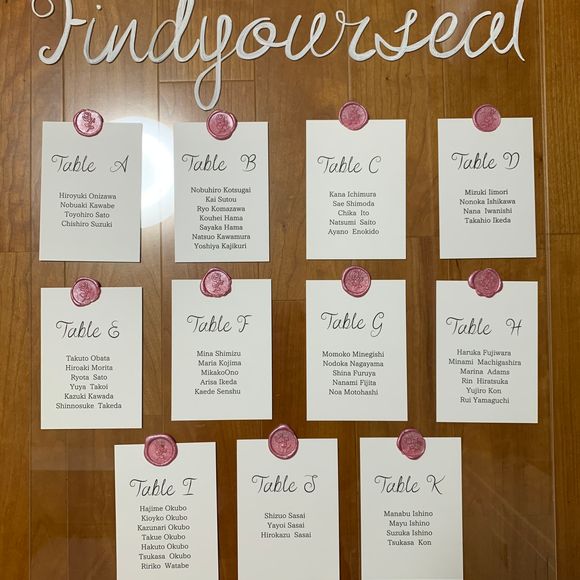 Findyourseat
Table A
Hiroyuki Onizawa
Nobuaki Kawabe
Toyohiro Sato
Chishiro Suzuki
Table B
Nobuhiro Kotsugai
Kai Sutou
Ryo Komazawa
Kouhei Hama
Sayaka Hama
Natsuo Kawamura
Yoshiya Kajikuri
Table C
Kana Ichimura
Sae Shimoda
Chika Ito
Natsumi Saito
Ayano Enokido
Table D
Mizuki Iimori
Nonoka Ishikawa
Nana Iwanishi
Takahio Ikeda
Table E
Takuto Obata
Hiroaki Morita
Ryota Sato
Yuya Takoi
Kazuki Kawada
Shinnosuke Takeda
Table F
Mina Shimizu
Maria Kojima
MikakoOno
Arisa Ikeda
Kaede Senshu
Table G
Momoko Minegishi
Nodoka Nagayama
Shina Furuya
Nanami Fijita
Noa Motohashi
Table H
Haruka Fujiwara
Minami Machigashira
Marina Adams
Rin Hiratsuka
Yujiro Kon
Rui Yamaguchi
Table I
Hajime Okubo
Kioyko Okubo
Kazunari Okubo
Takue Okubo
Hakuto Okubo
Tsukasa Okubo
Ririko Watabe
Table J
Shizuo Sasai
Yayoi Sasai
Hirokazu Sasai
Table K
Manabu Ishino
Mayu Ishino
Suzuka Ishino
Tsukasa Kon